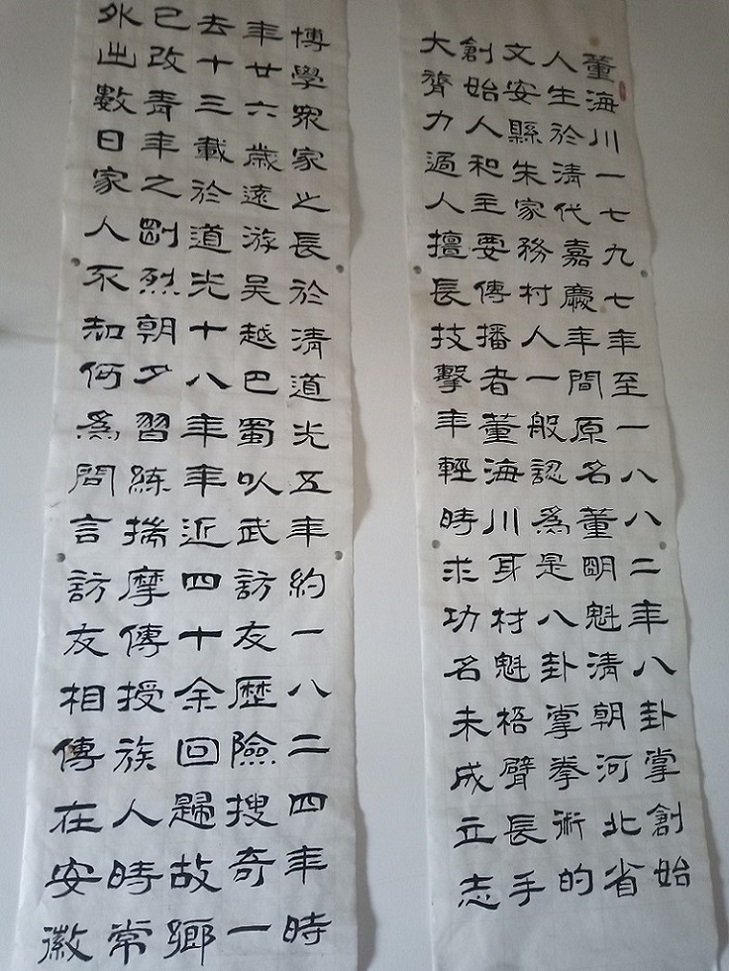 董海川一七九七年至一八八二年八卦掌創始
人生於清代嘉慶年間原名董明魁清朝河北省
文安縣朱家務村人一般認爲是八卦掌拳術的
創始人和主要傳播者董海川身材魁梧臂長手
大膂力過人擅長技擊年輕時求功名未成立志
博學眾家之長於清道光五年約一八二四年時
年廿六歲遠游吳越巴蜀以武訪友歷險搜奇一
去十三載於道光十八年年近四十余回歸故鄉
已改青年之剛烈朝夕習練揣摩傳授族人時常
外出數日家人不知何爲問言訪友相傳在安徽